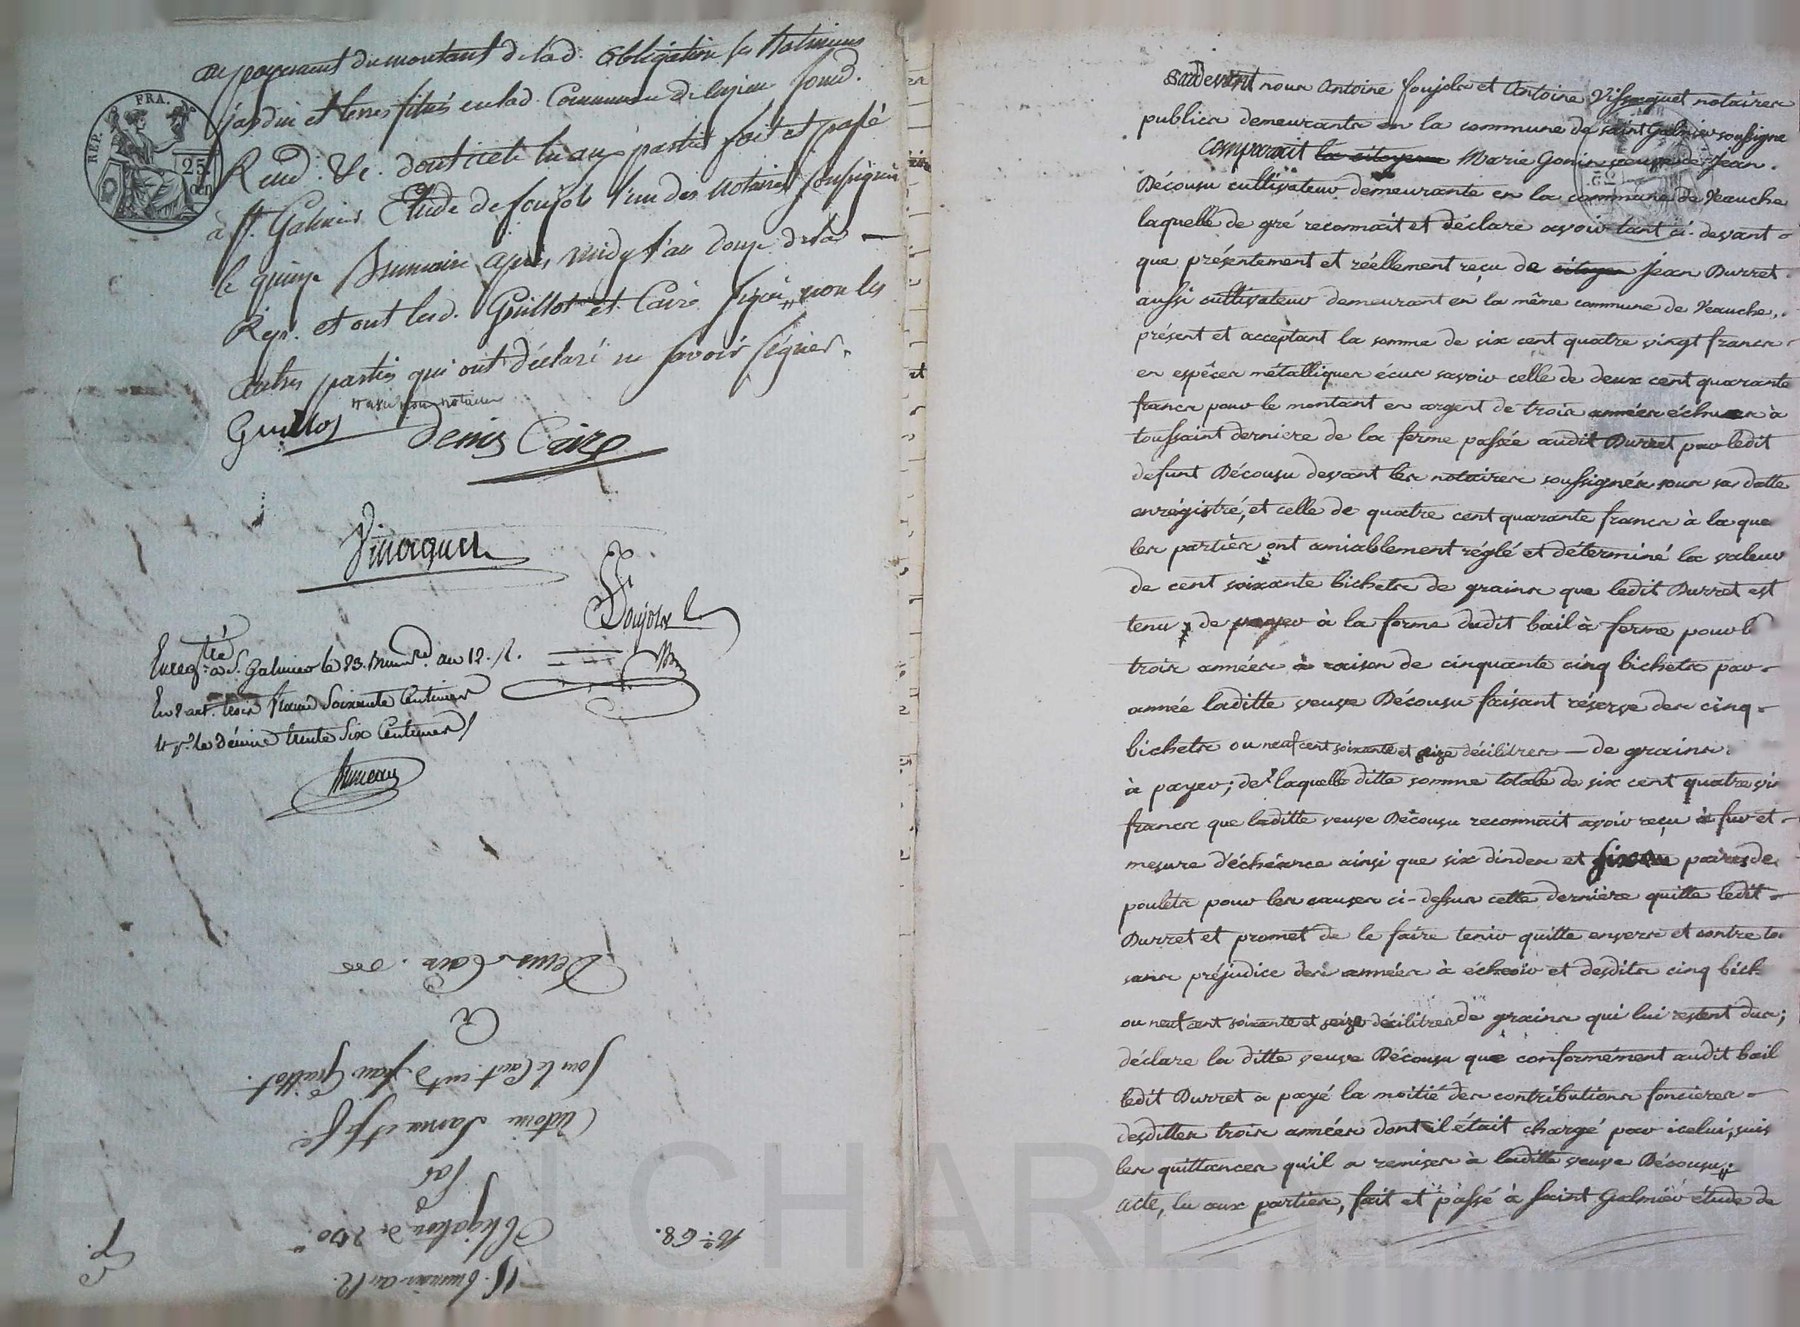 de payement du montant de lad. obligation les batiments
jardin et terres situés en lad. Commune de
Rend. &c. dont acte lu aux parties fait et passé
à St. Galmier Etude de foujols l'un des notaires soussignés
le quinze Brumaire après midy l'an douze de la
Rep. et ont lesd. Guillot et Caire signé, non les
autres parties qui ont déclaré ne savoir signer.
Guillot
Denis Caire
Vissaguet
Foujols
REP. FRA.
25
cen
Enregtré à St. Galmier le 23. brum.re an 12.
trois francs soixante Centimes
trente six Centimes
Denis Caire
à
Antoine
par
Obligation de
15. brumaire an 12.
N.o 68.
Pardevant nous Antoine foujols et Antoine Vissaguet notaires
publics demeurants en la commune de saint Galmier soussignés
Comparait la citoyenne Marie Gonin veuve de Jean
Décousu cultivateur demeurante en la commune de Veauche
laquelle de gré reconnait et déclare avoir tant ci-devant
que présentement et réellement reçu de citoyen Jean Durret
aussi cultivateur demeurant en la même commune de Veauche,
présent et acceptant la somme de six cent quatre vingt francs
en espèces métalliques écus savoir celle de deux cent quarante
francs pour le montant en argent de trois années échues à
toussaint derniere de la ferme passée audit Durret par ledit
defunt Décousu devant les notaires soussignés sous sa datte
enrégistré, et celle de quatre cent quarante francs à la que
les parties ont amiablement réglé et déterminé la valeur
de cent soixante bichets de grains que ledit Durret est
tenu de payer à la forme dudit bail à ferme pour l
trois années à raison de cinquante cinq bichets par
année laditte veuve Décousu faisant réserve des cinq
bichets ou neuf cent soixante et seize décilitres — de grains
à payer; de laquelle ditte somme totale de six cent quatre vin
francs que laditte veuve Décousu reconnait avoir reçu à fur et
mesure d'échéance ainsi que six dindes et paires de
poulets pour les causes ci-dessus cette dernière quitte ledit
Durret et promet de le faire tenir quitte envers et contre to
sans préjudice des années à échoir et desdits cinq bich
ou neuf cent soixante et seize décilitres de grains qui lui restent dus;
déclare la ditte veuve Décousu que conformément audit bail
ledit Durret a payé la moitié des contributions foncieres
desdittes trois années dont il était chargé par icelui, suiv
les quittances qu'il a remises à laditte veuve Décousu;
acte, lu aux parties, fait et passé à saint Galmier étude de
CHAREYRON